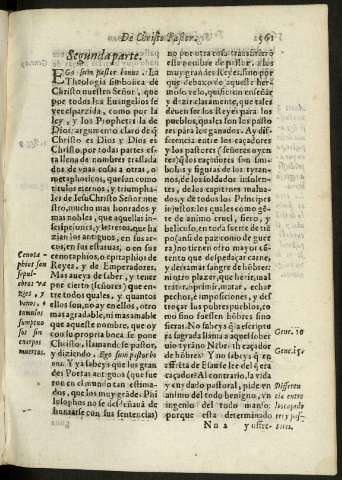 De Christo Pastor.
1561
Segunda parte.
EGo sum pastor bonus. La
Theologia simbolica de
Christo nuestro Señor, que
por todos los Euangelios se
vee esparzida, como por la
ley, y los Prophetas la de
Dios, argumento claro de q̃
Christo es Dios y Dios es
Christo, por todas partes es-
ta llena de nombres traslada
dos de vnas cosas a otras, o
metaphoricos, que son como
titulos eternos, y triumpha-
les de Iesu Christo Señor nue
stro, mucho mas honrados y
mas nobles, que aquellas ins-
cripciones, y letreros, que ha
zian los antiguos, en sus ar-
cos, en sus estatuas, o en sus
cenotaphios, o epitaphios de
Reyes, y de Emperadores.
Mas aueys de saber, y tener
por cierto (señores) que en-
tre todos quales, y quantos
ellos son, no ay en ellos, otro
mas agradable, ni mas amable
que aqueste nombre, que oy
con su propria boca se pone
Christo, llamandose pastor,
y diziendo, Ego sum pastor bo
nus. Y ya sabeys que los gran
des Poetas antiguos (que fue
ron en el mundo tan estima-
dos, que los muy grãdes Phi
losophos no se desdeñauã de
honrarse con sus sentencias)
Cenota-
phios son
sepul-
chros va
zios, y
vanos,
tumulos
sumptuo
sos sin
cuerpos
muertos.
no por otra cosa transfieren
este nombre de pastor, a los
muy grandes Reyes, sino por
que debaxo de aquel hermo-
so velo, quisieron enseñar
y dezir claramente, que tales
deuen ser los Reyes para los
pueblos, quales son los pasto
res para los ganados. Ay di-
ferencia entre los caçadores
y los pastores (señores oyen-
tes) q̃ los caçadores son sim-
bolos y figuras de los tyran-
nos, de los soldados insolen-
tes, de los capitanes malua-
dos, y de todos los Principes
injustos: los quales como gẽ-
te de animo cruel, fiero, y
helicoso, en toda suerte de tiẽ
po (ansi de paz como de guer
ra) no tienen otro mayor cõ-
tento que despedaçar carne,
y derramar sangre de hõbres:
ningun plazer, que herir, mal
tratar, oprimir, matar, echar
pechos, e imposiciones, y des
troçar los pobres pueblos, co
mo sino fuessen hõbres sino
fieras. No sabeys q̃ la escriptu
ra sagrada llama a aquel sober
uio tyrãno Nẽbrot caçador
de hõbres? Y no sabeys q̃ en
afrẽta de Esau se lee del q̃ era
caçador? Al contrario, la vida
y cuydado pastoral, pide vn
animo del todo benigno, vn
ingenio del todo manso,
porque esta determinado
Gene. 10
Gene. 15.
Differẽ
cia entre
los caçado
res y pas-
tores.
Nnn 2 y ofre-